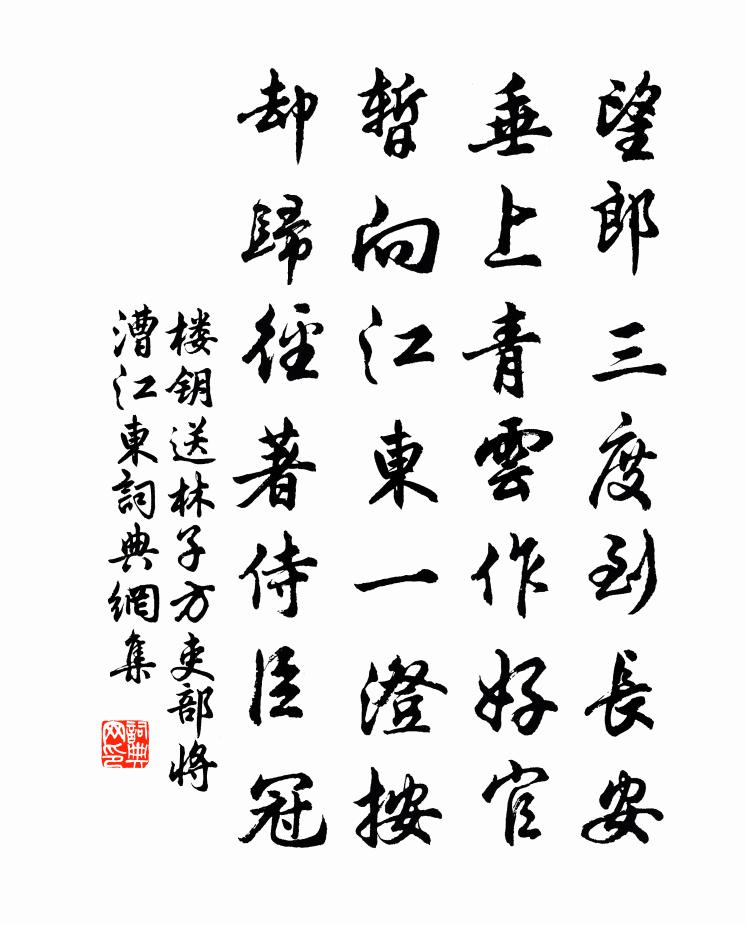 望郎三度到長安
垂上青雲作好官
暫向江東一澄按
却歸徑著侍臣冠
楼钥送林子方吏部将
漕江東詞典網集
詞典网印